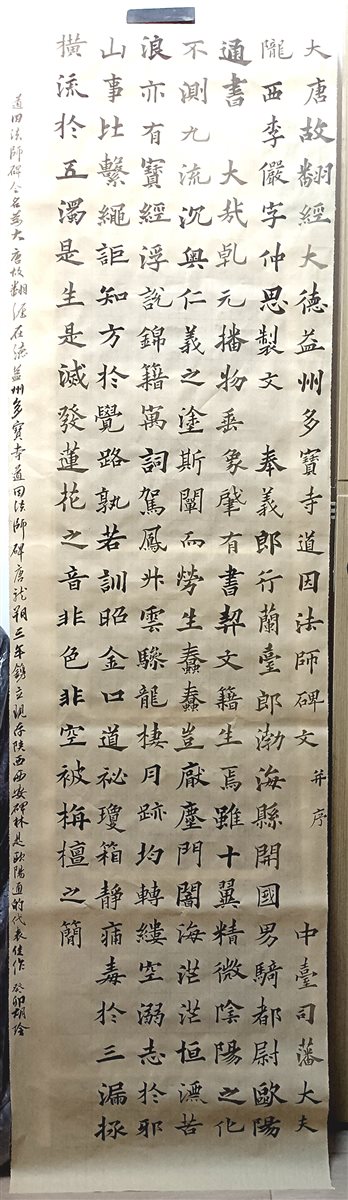 大唐故翻經大德益州多寶寺道因法師碑文并序 中臺司藩大夫
隴西李儼字仲思製文 奉義郎行蘭臺郎渤海縣開國男騎都尉歐陽
通書 大哉乾元播物垂象肇有書契文籍生焉雖十翼精微陰陽之化
不測九流沉奧仁義之塗斯闡而勞生蠢蠢豈厭塵門闇海茫茫恒漂苦
浪亦有寶經浮說錦籍寓詞駕鳳升雲驂龍棲月跡均轉縷空溺志於邪
山事比繫繩詎知方於覺路孰若訓昭金口道祕瓊箱靜痡毒於三漏拯
橫流於五濁是生是滅發蓮花之音非色非空被栴檀之簡
道因法師碑全名為大唐故翻經大德益州多寶寺道因法師碑唐龍朔三年鐫立現存陝西西安碑林是歐陽通的代表佳作 癸卯胡